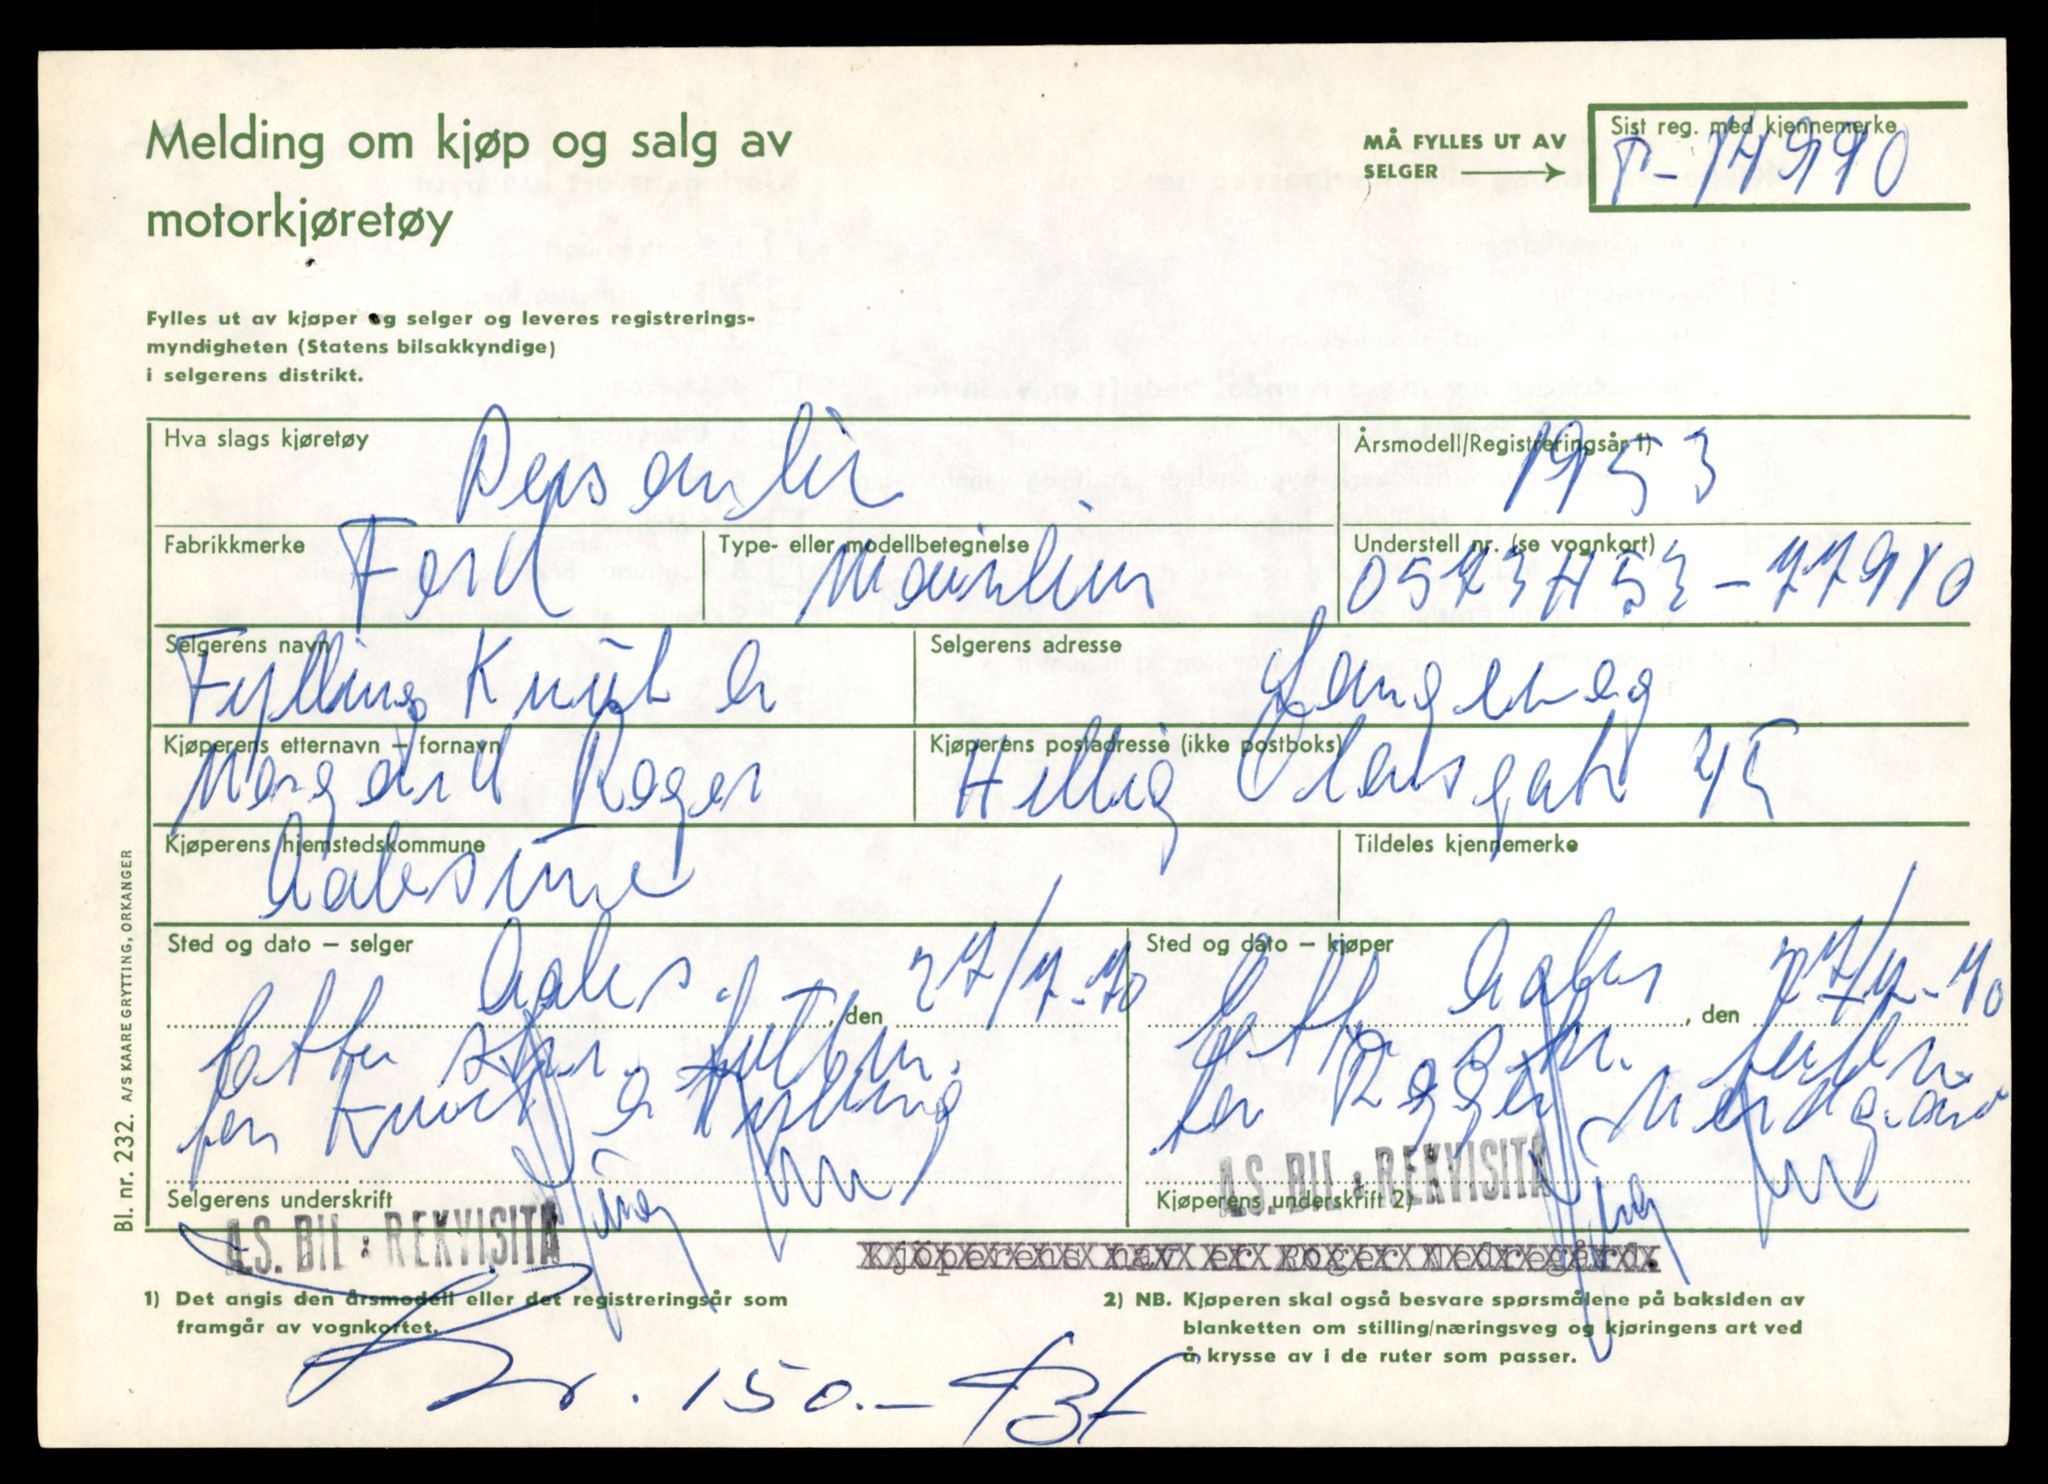 Melding om kjøp og salg av
motorkjøretøy
MÅ FYLLES UT AV
SELGER
Sist reg. med kjennemerke
T-14990
Fylles ut av kjøper og selger og leveres registrerings-
myndigheten (Statens bilsakkyndige)
i selgerens distrikt.
Hva slags kjøretøy
Årsmodell/Registreringsår 1)
1953
Fabrikkmerke
Ford
Type- eller modellbetegnelse
Understell nr. (se vognkort)
Selgerens navn
Fylling Knut
Selgerens adresse
Langevåg
Kjøperens etternavn – fornavn
Roger
Kjøperens postadresse (ikke postboks)
Hellig Olavsgate 45
Kjøperens hjemstedskommune
Tildeles kjennemerke
Aalesund
Sted og dato – selger
Aales. , den 27/7-70
etter skr. fullm.
for Knut Fylling
Selgerens underskrift
A.S. BIL : REKVISITA
Sted og dato – kjøper
Aales , den 27/7-70
etter skr. fullm.
for Roger
A.S. BIL : REKVISITA
Kjøperens underskrift 2)
Kjøperens nav er Roger Nedregård.
1) Det angis den årsmodell eller det registreringsår som
framgår av vognkortet.
2) NB. Kjøperen skal også besvare spørsmålene på baksiden av
blanketten om stilling/næringsveg og kjøringens art ved
å krysse av i de ruter som passer.
Kr. 150.-
Bl. nr. 232. A/S KAARE GRYTTING, ORKANGER